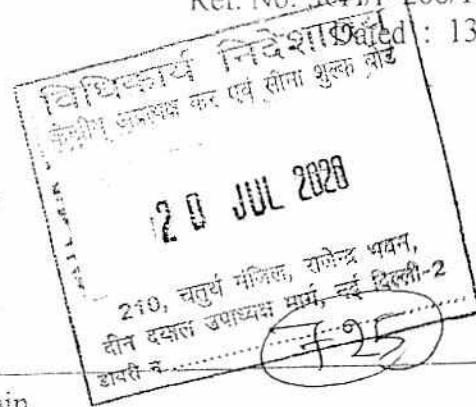 Ref. No.
Dated : 13
विधिकार्य निदेशालय
केन्द्रीय अप्रत्यक्ष कर एवं सीमा शुल्क बोर्ड
20 JUL 2020
210, चतुर्थ मंजिल, राजेन्द्र भवन,
दीन दयाल उपाध्याय मार्ग, नई दिल्ली-2
डायरी नं.